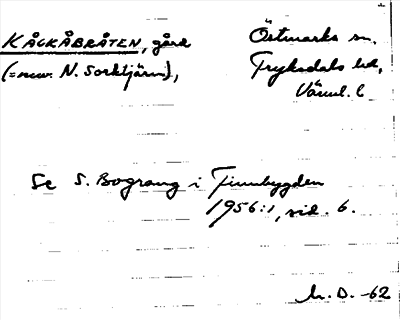 KÅCKÅBRÅTEN, gård
(= nuv. N. Sorktjärn),
Östmarks sn.
Fryksdals hd,
Värml. l.
Se S. Bograng i Finnbygden
1956:1, sid. 6.
D. -62